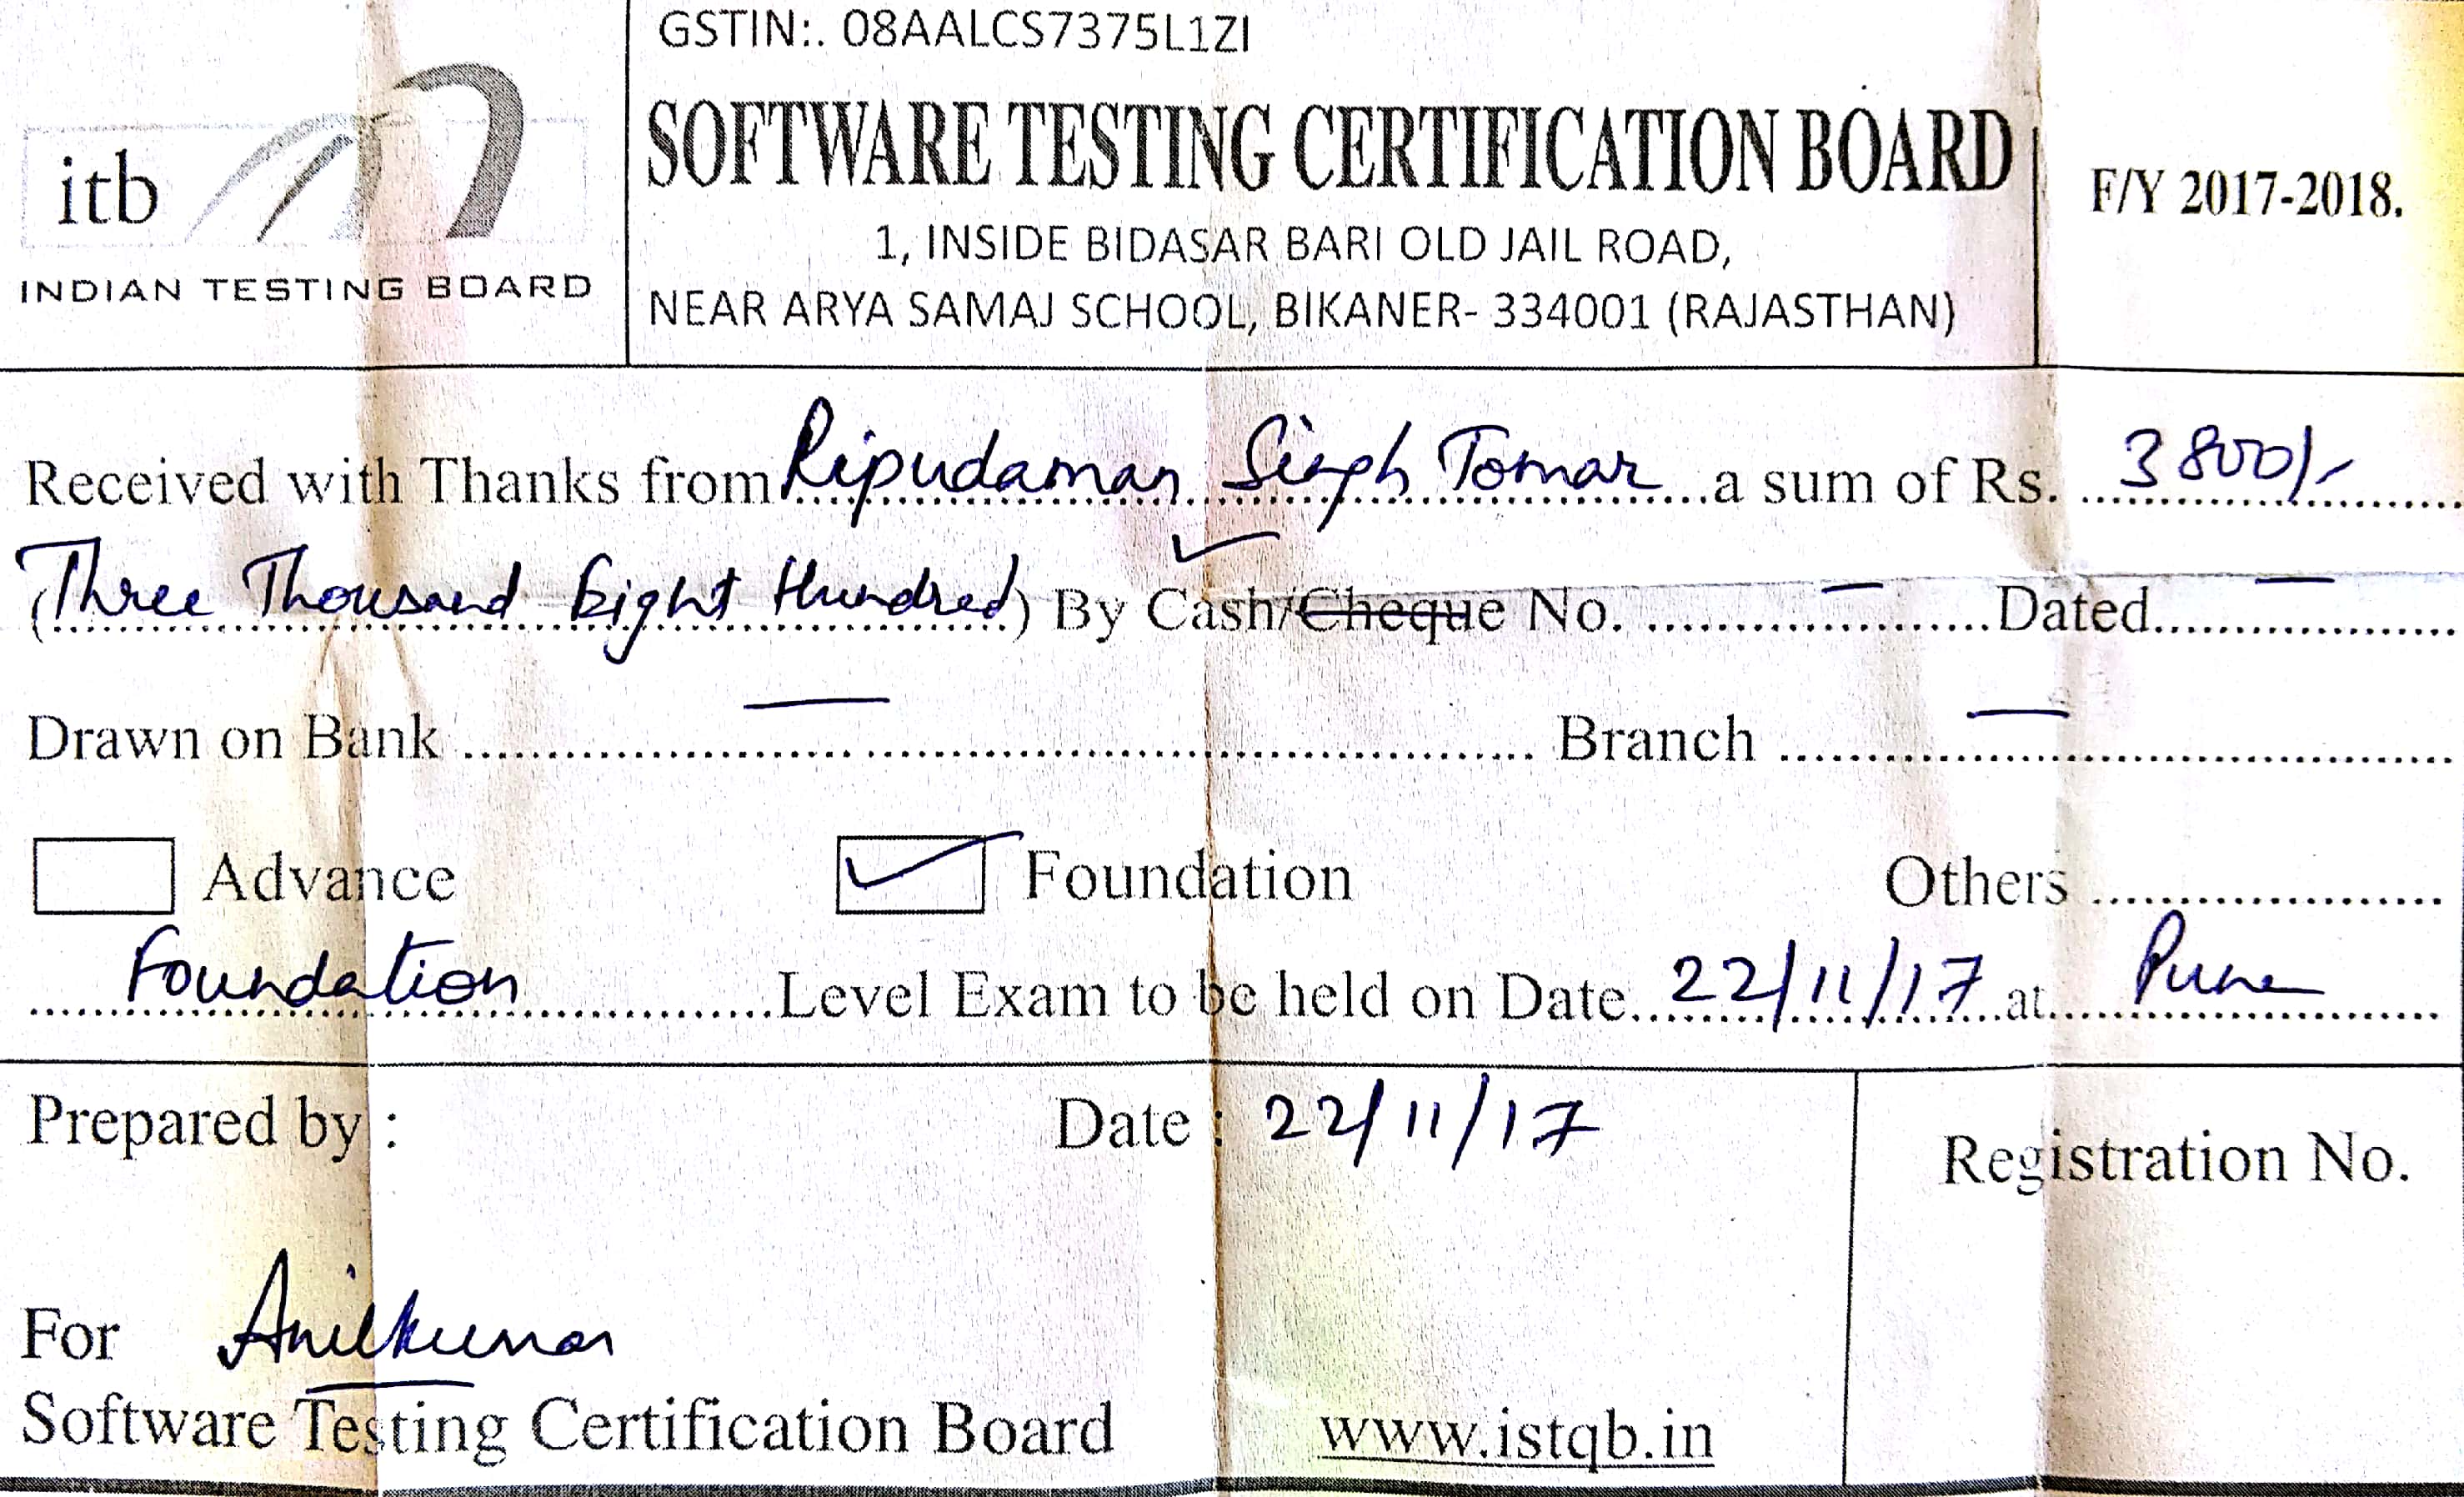 GSTIN:. 08AALCS7375L1ZI
itb
INDIAN TESTING BOARD
SOFTWARE TESTING CERTIFICATION BOARD
1, INSIDE BIDASAR BARI OLD JAIL ROAD,
NEAR ARYA SAMAJ SCHOOL, BIKANER- 334001 (RAJASTHAN)
F/Y 2017-2018.
Received with Thanks from Ripudaman Singh Tomar a sum of Rs. 3800/-
(Three Thousand Eight Hundred) By Cash/Cheque No. — Dated —
Drawn on Bank — Branch —
Advance ✓ Foundation Others
Foundation Level Exam to be held on Date 22/11/17 at Pune
Prepared by : Date : 22/11/17
Registration No.
For Anilkumar
Software Testing Certification Board www.istqb.in